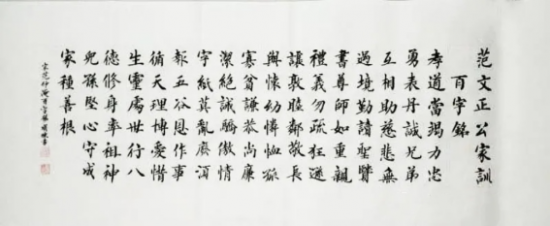 范文正公家訓
百字銘
孝道當竭力忠
勇表丹誠兄弟
互相助慈悲無
過境勤讀聖賢
書尊師如重親
禮義勿疏狂遜
讓敦睦鄰敬長
與懷幼憐恤孤
寡貧謙恭尚廉
潔絕誡驕傲情
字紙莫亂廢湏
報五谷恩作事
循天理博愛惜
生靈處世行八
德修身率祖神
兒孫堅心守成
家種善根
宋范仲淹百字銘